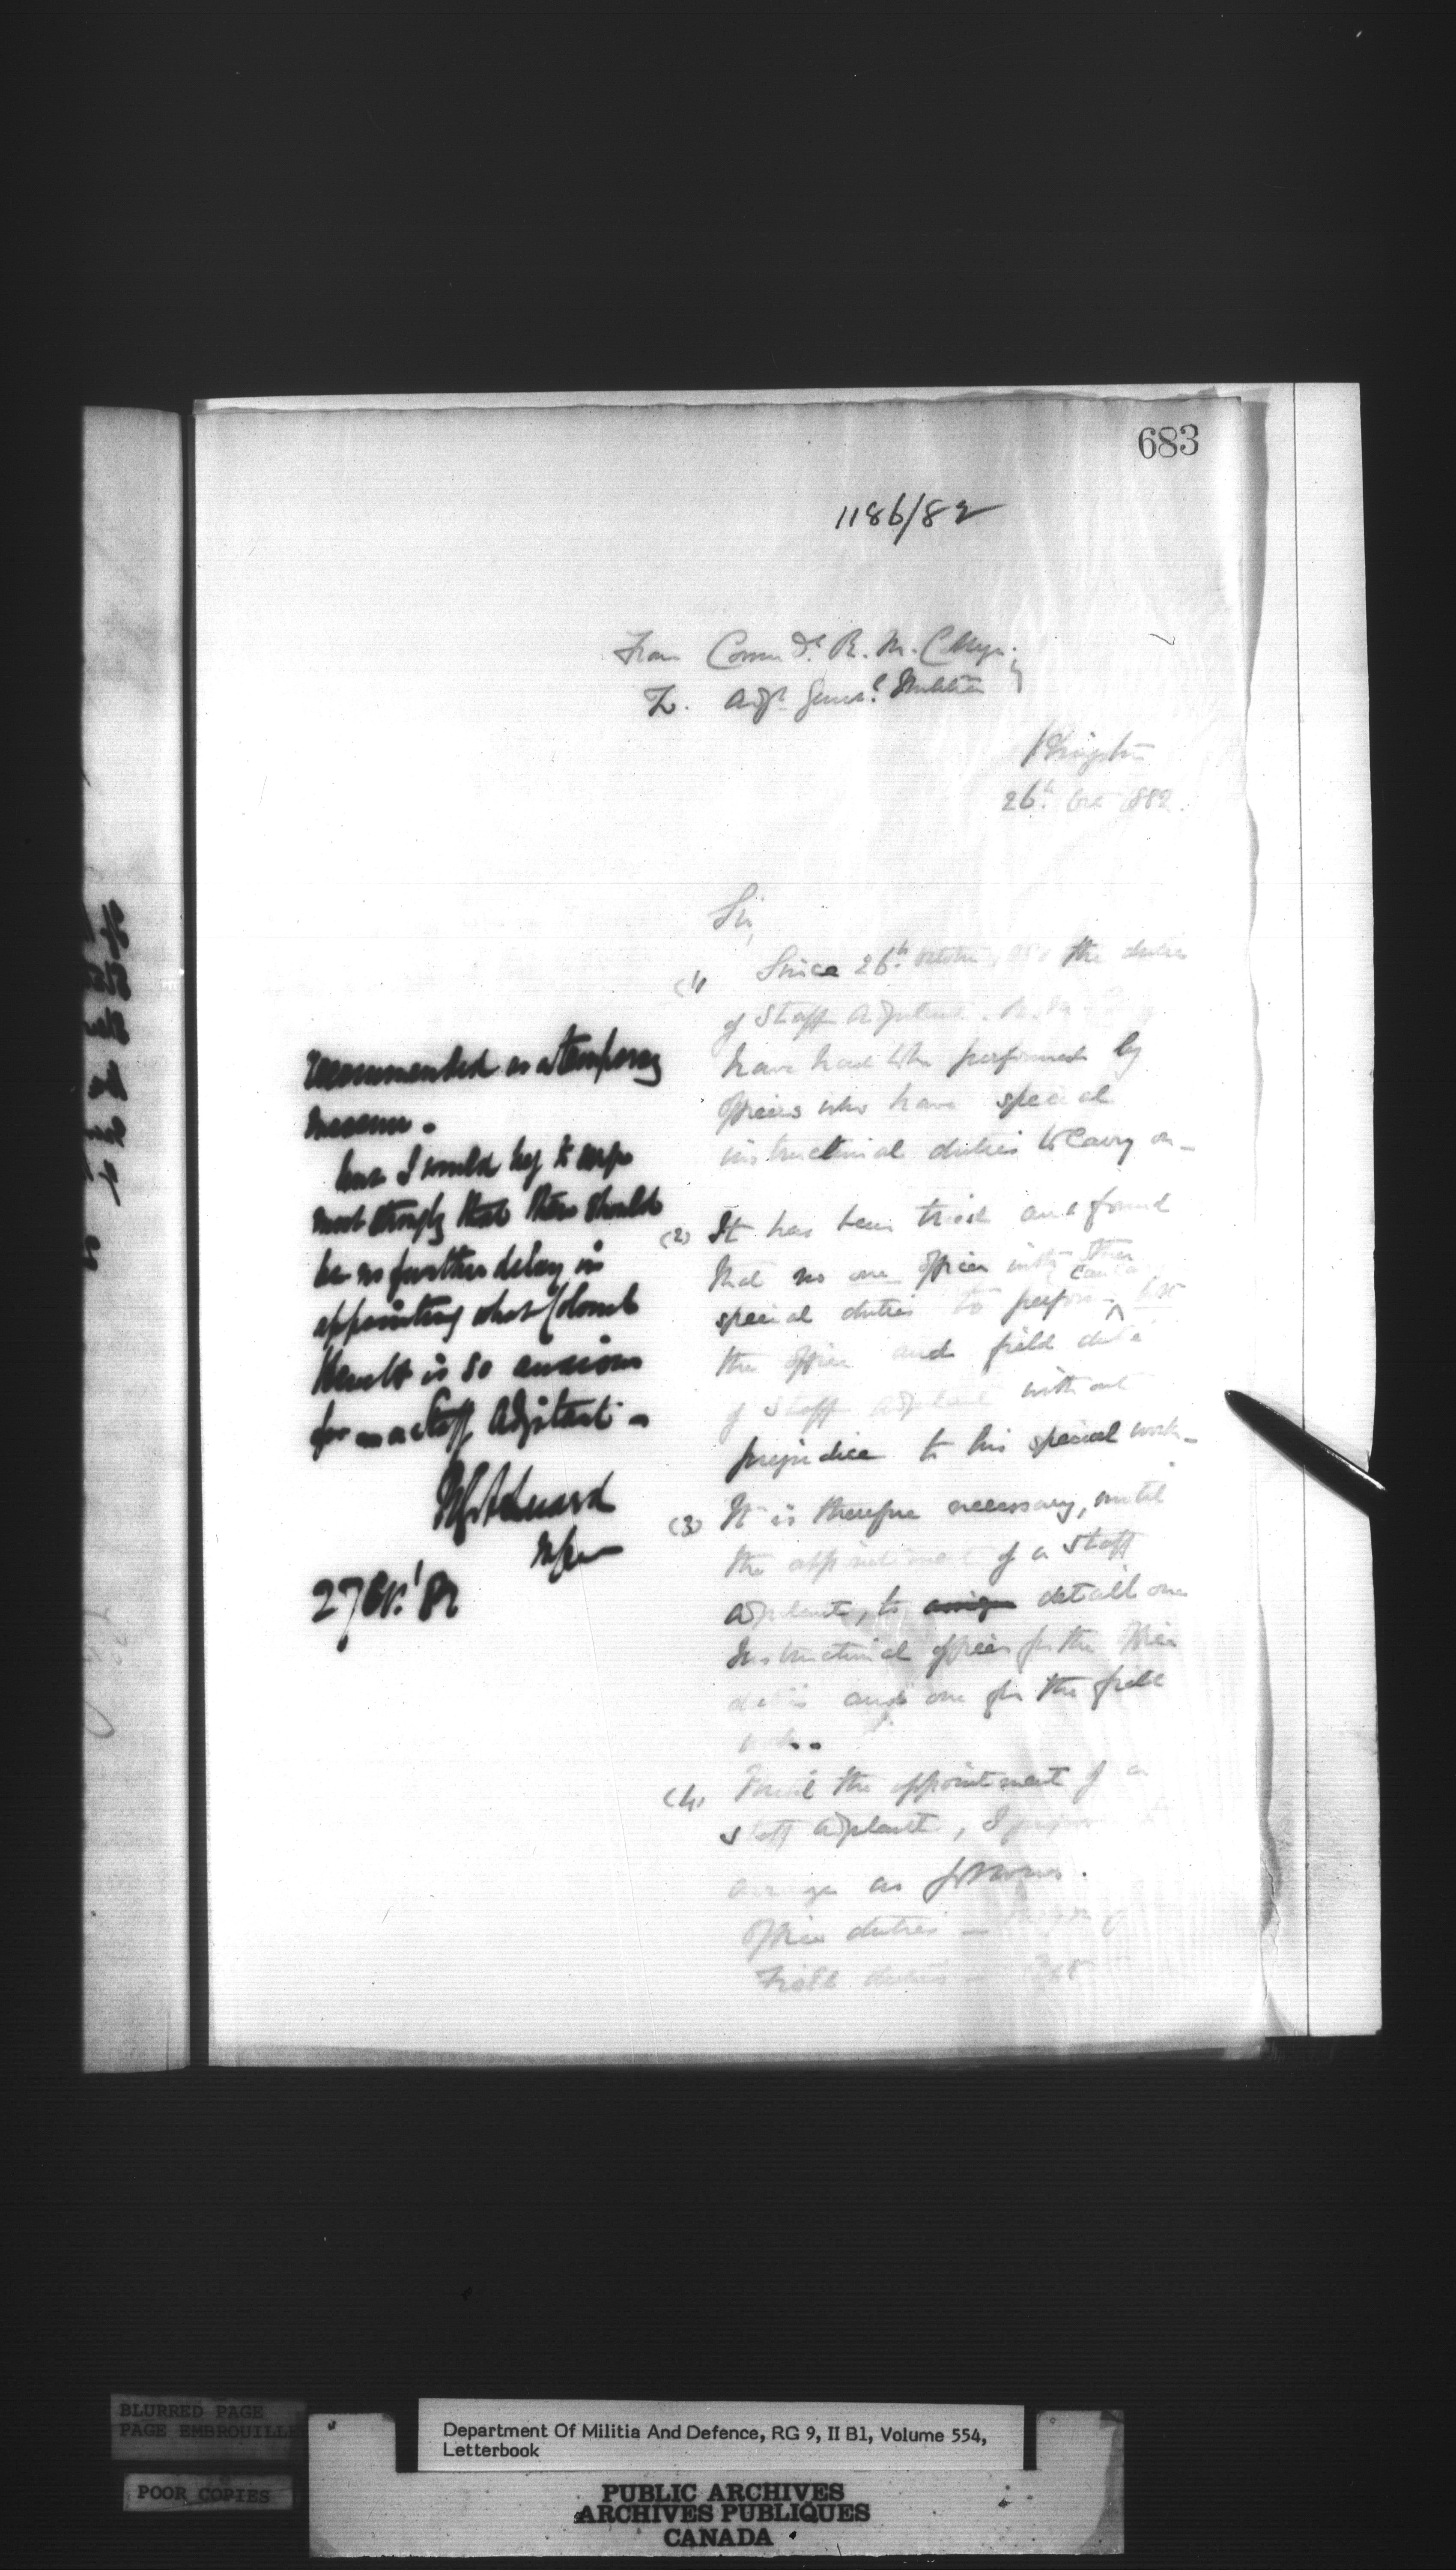 683
1186/82
From Commdt. R. M. College
To. Adjt. Genl. Militia
Kingston
26th Oct 1882.
Sir,
(1) Since 26th October the duties
of Staff Adjutant R. M.
have had to be performed by
Officers who have special
instructional duties to carry on_
(2) It has been tried and found
that no one officer with other
special duties to perform can
the office and field duties
of Staff Adjutant without
prejudice to his special work_
(3) It is therefore necessary, until
the appointment of a Staff
Adjutant, to assign detail one
Instructional officer for the Office
duties and one for the field
(4) Until the appointment of a
Staff Adjutant, I propose to
arrange as follows.
Office duties _
Field duties _ Capt
Recommended as a temporary
measure.
but I would beg to urge
most strongly that there should
be no further delay in
appointing what Colonel
Hewett is so anxious
for _ a Staff Adjutant _
Luard
27 Oct. '82
BLURRED PAGE
PAGE EMBROUILLE
POOR COPIES
Department Of Militia And Defence, RG 9, II B1, Volume 554,
Letterbook
PUBLIC ARCHIVES
ARCHIVES PUBLIQUES
CANADA